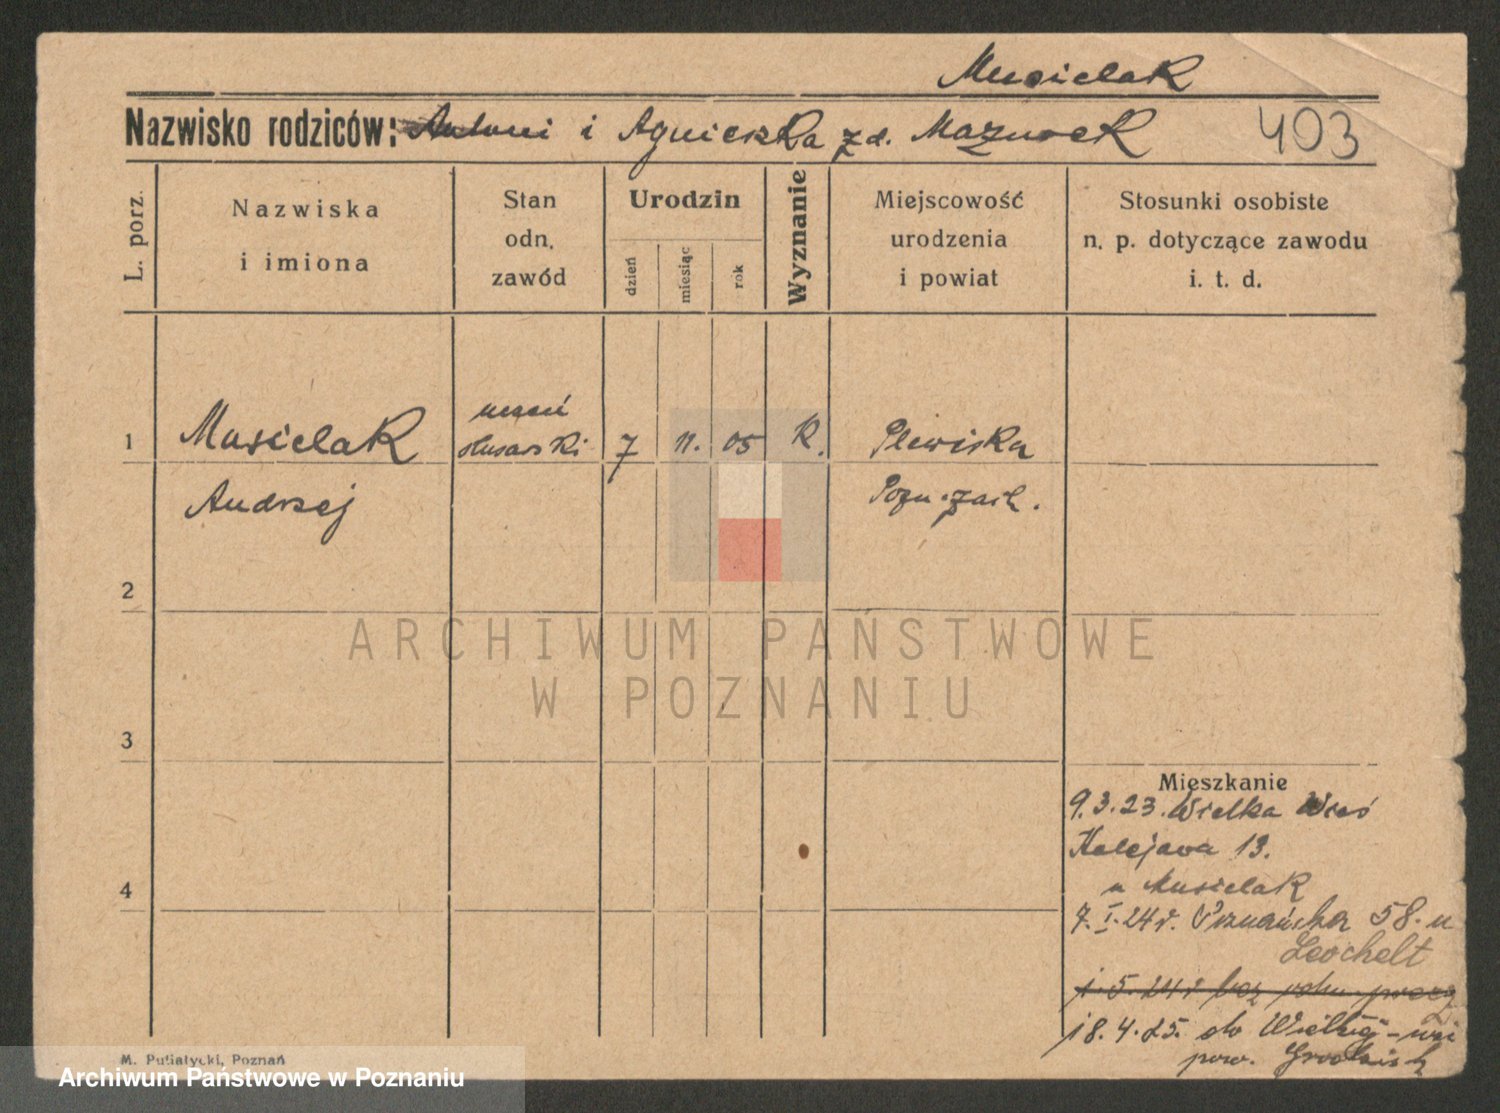 Musielak
Nazwisko rodziców: Antoni i Agnieszka z d. Mazurek 403
L. porz.
Nazwiska
i imiona
Stan
odn.
zawód
Urodzin
dzień
miesiąc
rok
Wyznanie
Miejscowość
urodzenia
i powiat
Stosunki osobiste
n. p. dotyczące zawodu
i. t. d.
uczeń
1 Musielak ślusarski 7 11. 05 K. Plewiska
Andrzej Pozn. zach.
2
ARCHIWUM PAŃSTWOWE
W POZNANIU
3
Mieszkanie
9.3.23. Wielka Wieś
Kolejowa 13.
u Musielak
4
7.I.24r. Poznańska 58. u
1.5.24r bez
18.4.25. do Wielkiej-wsi
pow. Grodzisk
M. Putiatycki, Poznań
Archiwum Państwowe w Poznaniu